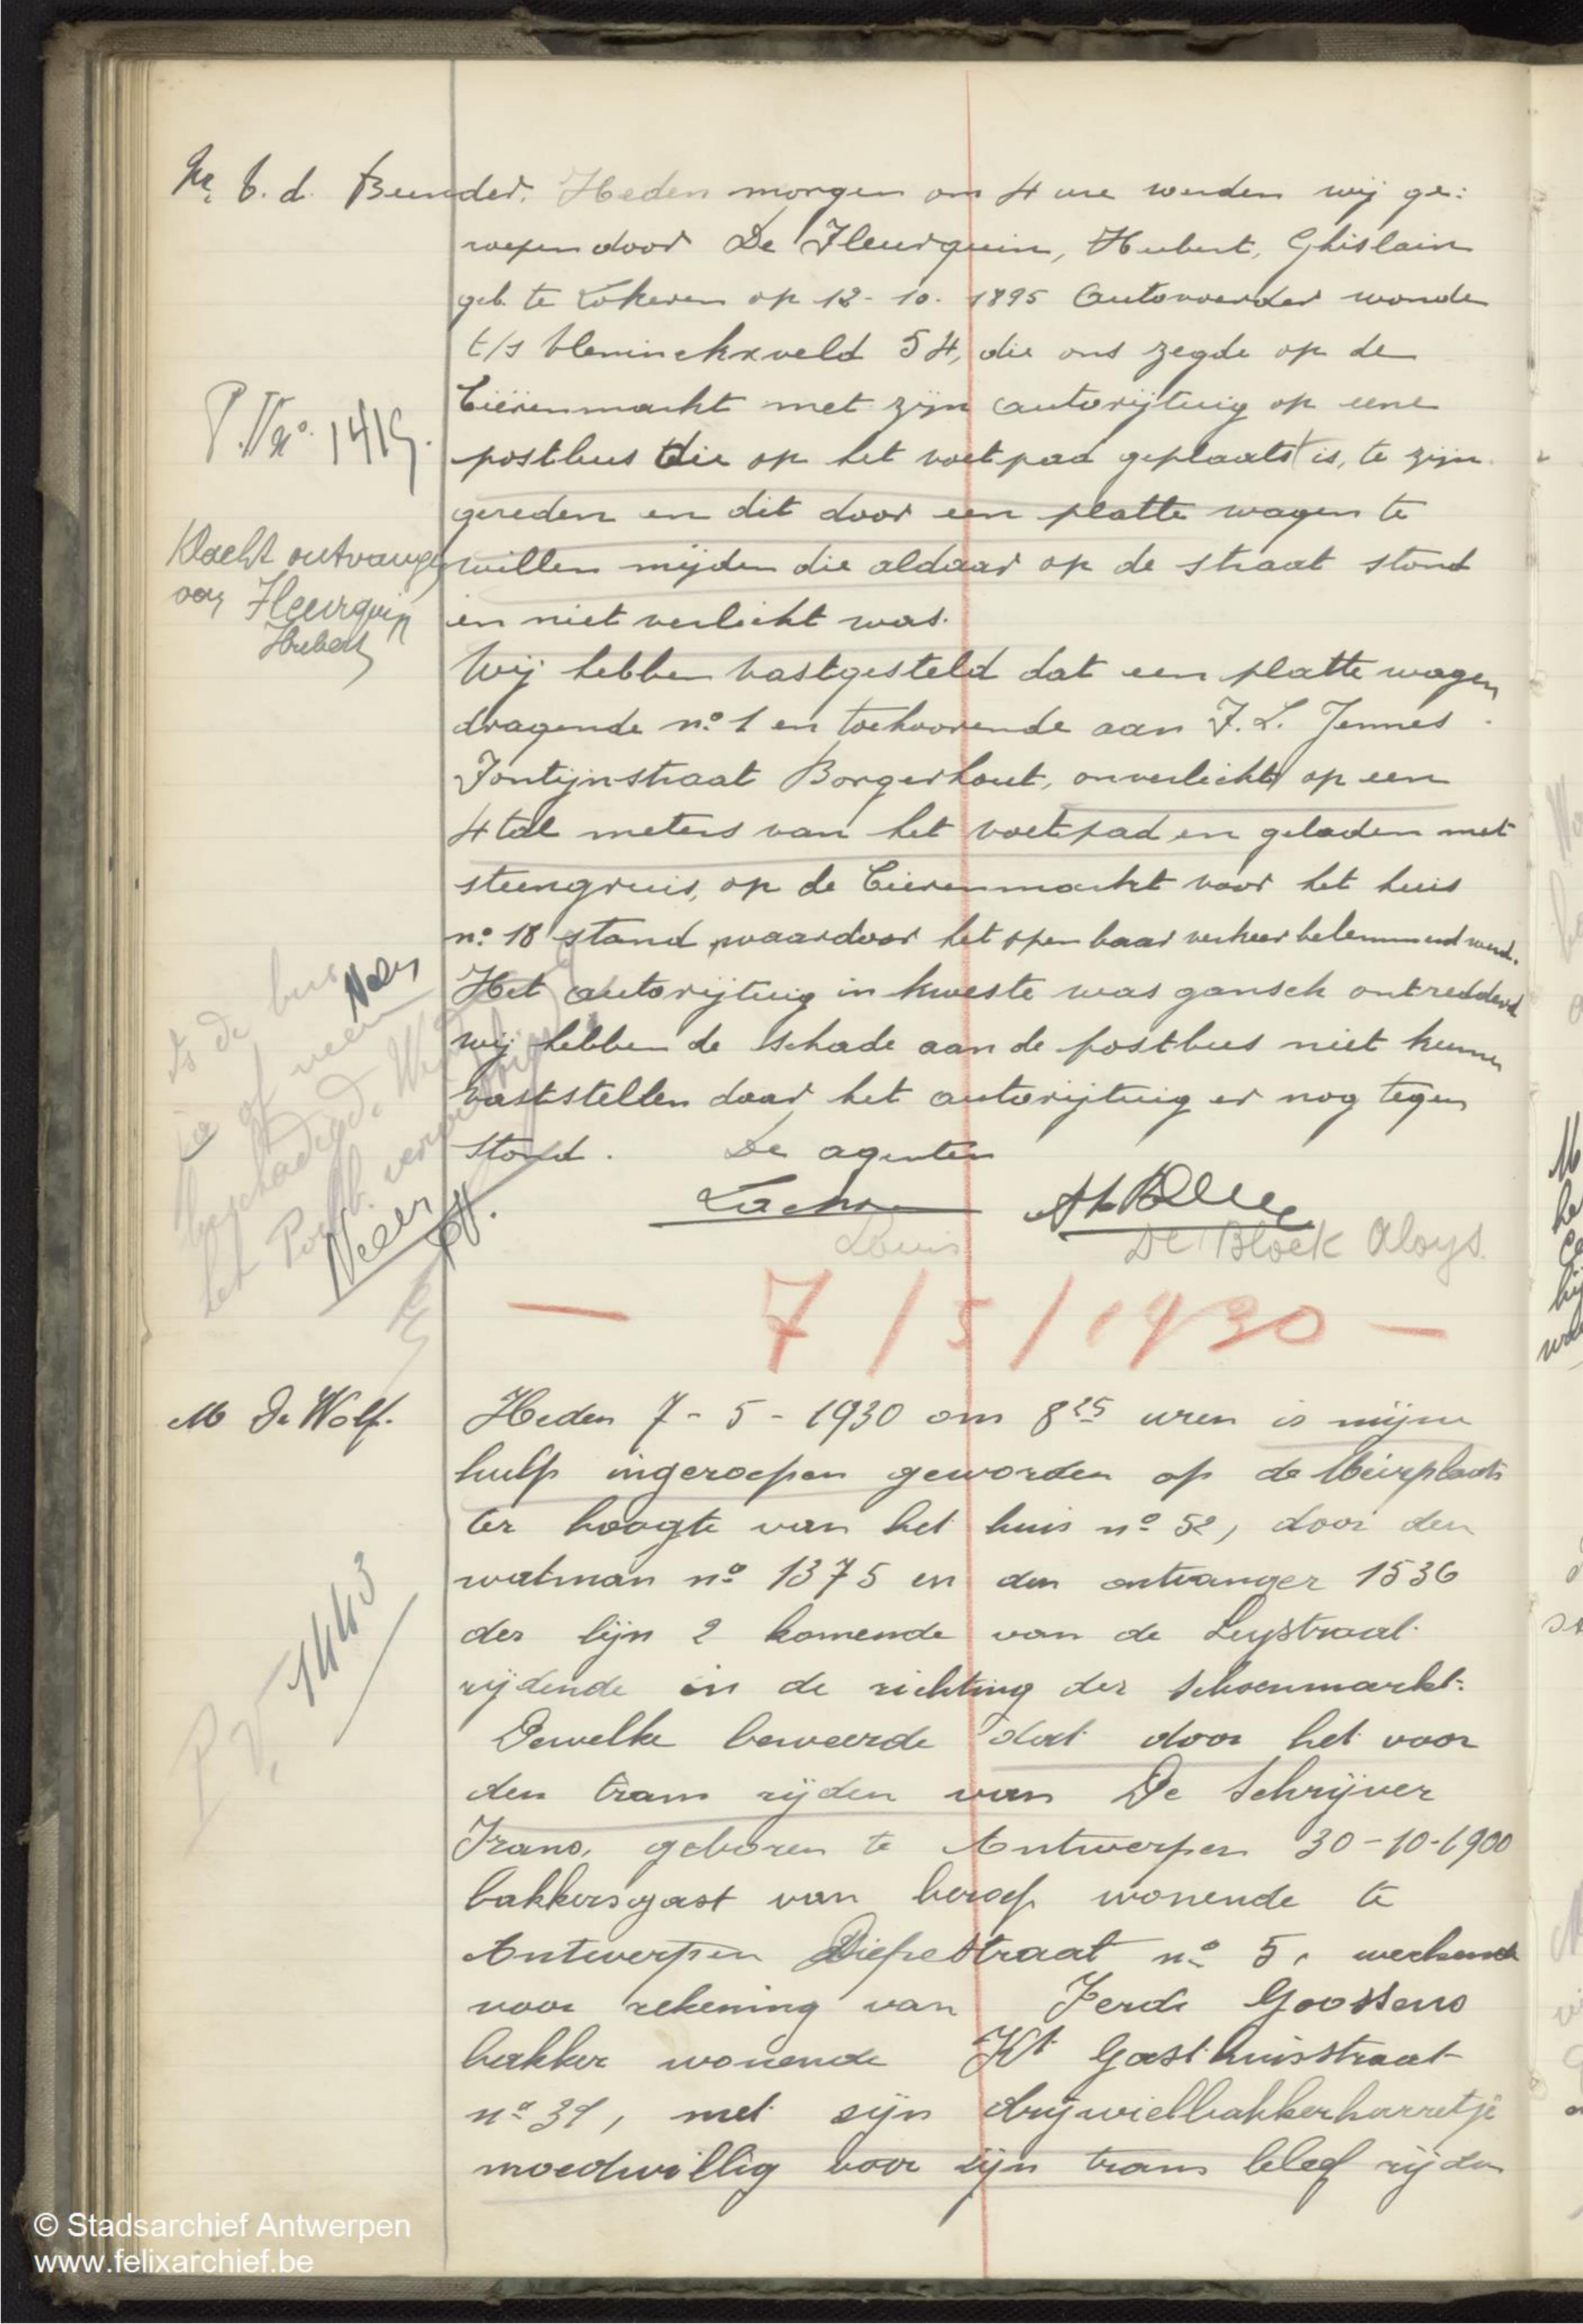 Mr v. d. Beunder. Heden morgen om 4 ure werden wij ge:
roepen door De Fleurquin, Hubert, Ghislain
geb. te Lokeren op 12-10-1895 Autovoerder wonde
t/s Vleminckxveld 54, die ons zegde op de
Eiërenmarkt met zijn autorijtuig op eene
P.V. nº 1419.
postbus die op het voetpad geplaatst is, te zijn
gereden en dit door een platte wagen te
Klacht ontvangen
willen mijden die aldaar op de straat stond
van Fleurquin
Hubert
en niet verlicht was.
Wij hebben vastgesteld dat een platte wagen
dragende nº 1 en toehoorende aan F. L. Jennes
Fontijnstraat Borgerhout, onverlicht op een
4 tal meters van het voetpad en geladen met
steengruis, op de Eierenmarkt voor het huis
nº 18 stond waardoor het openbaar verkeer belemmerd werd.
Het autorijtuig in kweste was gansch ontredderd
wij hebben de schade aan de postbus niet kunnen
vaststellen daar het autorijtuig er nog tegen
stond. De agenten
Is de bus
ja of neen
beschadigd.
het Postb. verwittigd
Neen
Neen
Louis De Block Aloys.
- 7/5/1930 -
M De Wolf.
Heden 7-5-1930 om 8 25 uren is mijne
hulp ingeroepen geworden op de Meirplaats
ter hoogte van het huis nº 52, door den
watman nº 1375 en den ontvanger 1536
der lijn 2 komende van de Leystraat
P.V. 1443
rijdende in de richting der Schoenmarkt.
Dewelke beweerde dat door het voor
den tram rijden van De Schrijver
Frans, geboren te Antwerpen 30-10-1900
bakkersgast van beroep wonende te
Antwerpen Diepestraat nº 5, werkend
voor rekening van Ferdi Goossens
bakker wonende Kt Gasthuisstraat
nº 39, met zijn drijwielbakkerkarretje
moedwillig voor zijn tram bleef rijden
© Stadsarchief Antwerpen
www.felixarchief.be